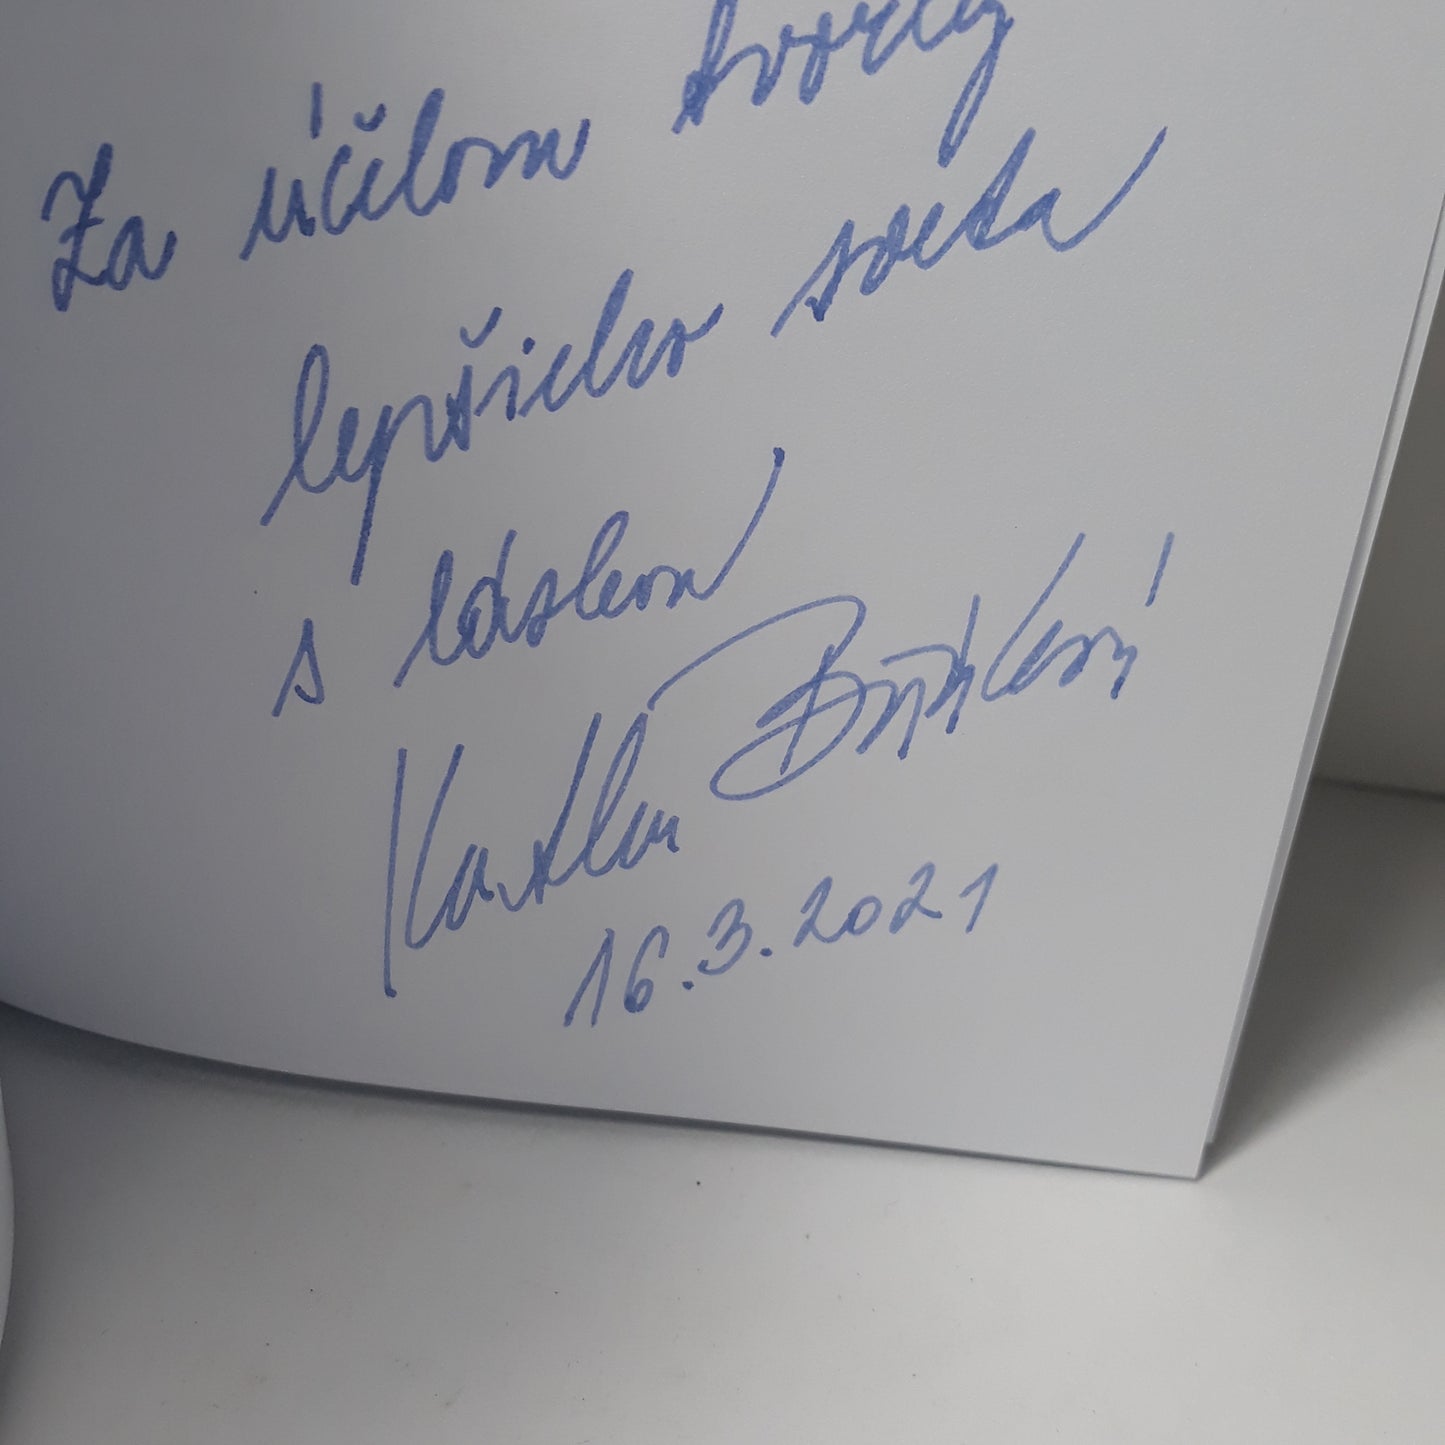 Za účelom tvorby
lepšieho sveta
s láskou
Katka
16.3.2021